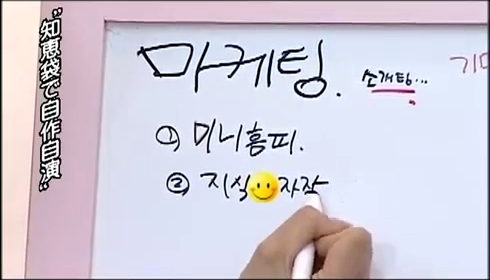 "知恵袋で自作自演"
마케팅.
소개팅...
① 미니홈피.
② 지식 자작